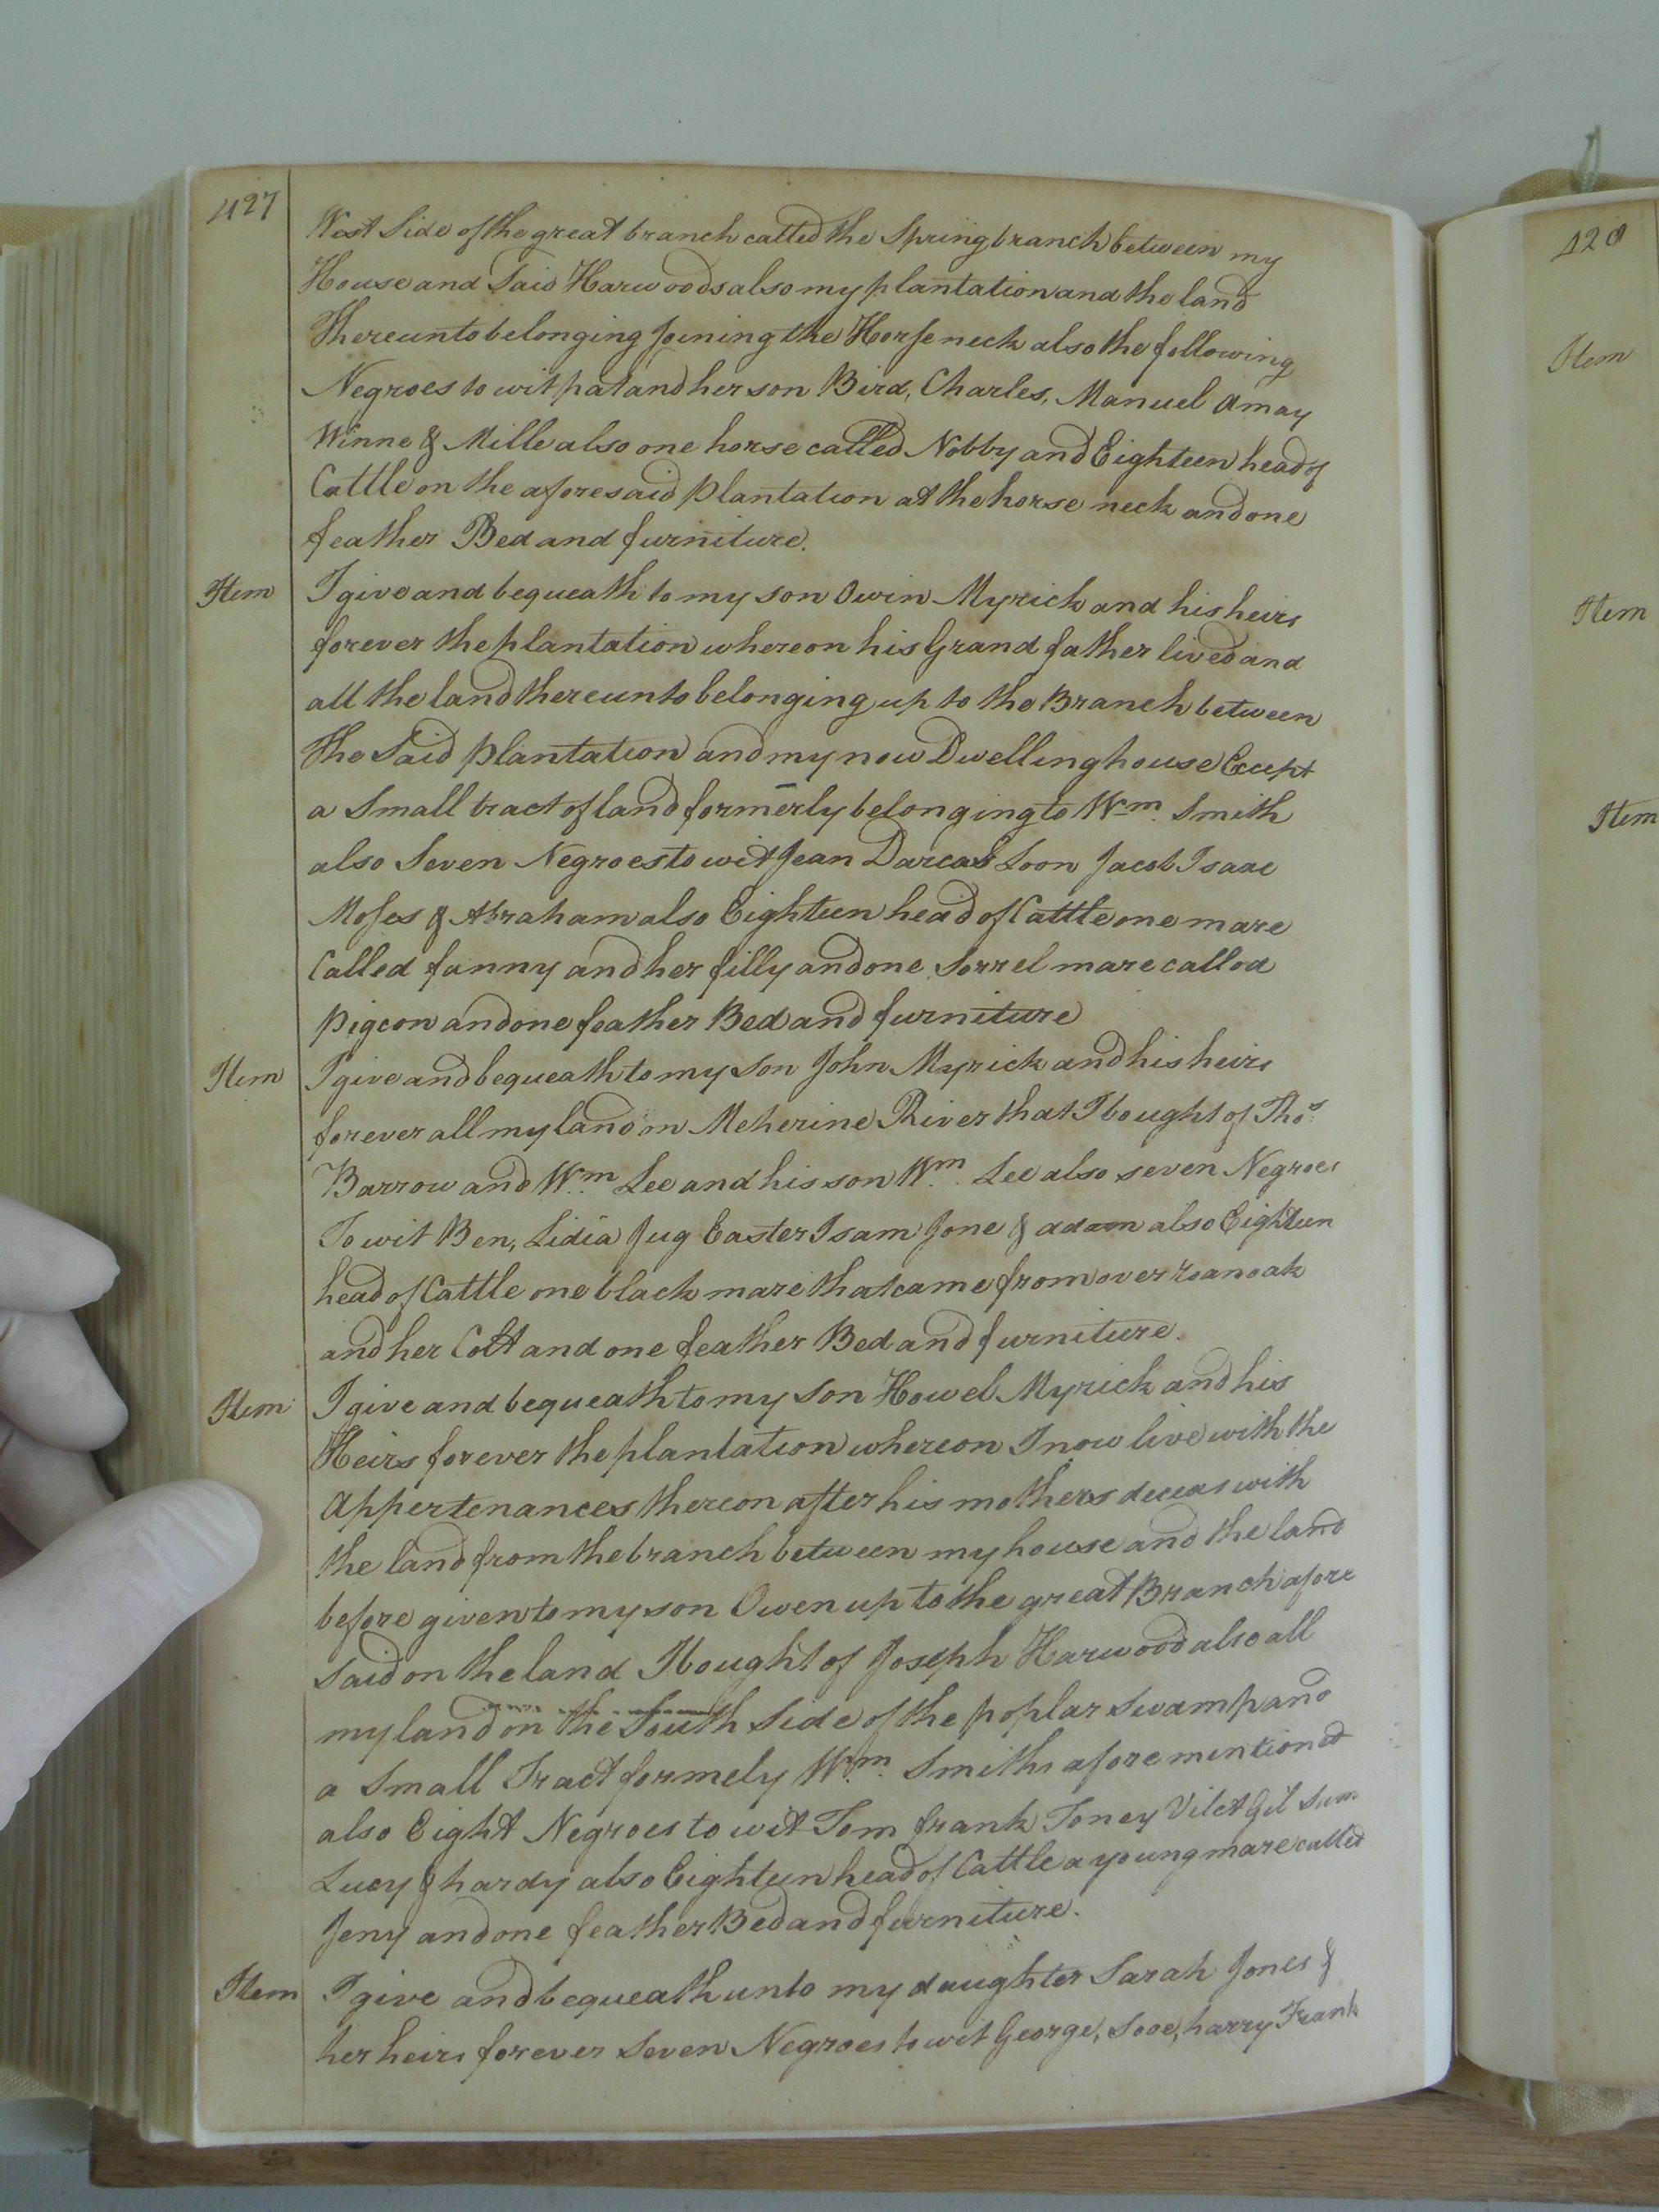 427
West Side of the great branch called the Spring branch between my
House and Said Harwoods also my plantation and the land
Thereunto belonging joining the Horse neck also the following
Negroes to wit pat and her son Bird, Charles, Manuel Amay
Winne & Mille also one horse called Nobby and Eighteen head of
Cattle on the aforesaid plantation at the horse neck and one
feather Bed and furniture.
Item I give and bequeath to my son Owin Myrick and his heirs
forever the plantation whereon his Grand father lived and
all the land thereunto belonging up to the Branch between
the Said plantation and my now Dwelling house Except
a Small tract of land formerly belonging to Wm. Smith
also Seven Negroes to wit Jean Darcas Loon Jacob Isaac
Moses & Abraham also Eighteen head of Cattle one mare
Called fanny and her filly and one Sorrel mare called
pigeon and one feather Bed and furniture
Item I give and bequeath to my Son John Myrick and his heirs
forever all my land on Meherine River that I bought of Thos.
Barrow and Wm. Lee and his son Wm. Lee also seven Negroes
To wit Ben, Lidia Jug Easter Isam Jone & adam also Eighteen
head of Cattle one black mare that came from over roanoak
and her Colt and one feather Bed and furniture.
Item I give and bequeath to my Son Howel Myrick and his
Heirs forever the plantation whereon I now live with the
Appertenances thereon after his mothers deceas with
the land from the branch between my house and the land
before given to my son Owen up to the great Branch afore
said on the land I bought of Joseph Harwood also all
my land on the South Side of the poplar Swamp and
a Small Tract formely Wm. Smiths afore mentioned
also Eight Negroes to wit Tom frank Toney Vilet Gil Sam
Lucy & hardy also Eighteen head of Cattle a young mare called
Jeny and one feather Bed and furniture.
Item I give and bequeath unto my daughter Sarah Jones &
her heirs forever Seven Negroes to wit George, Sooe, harry Frank
428
Item
Item
Item